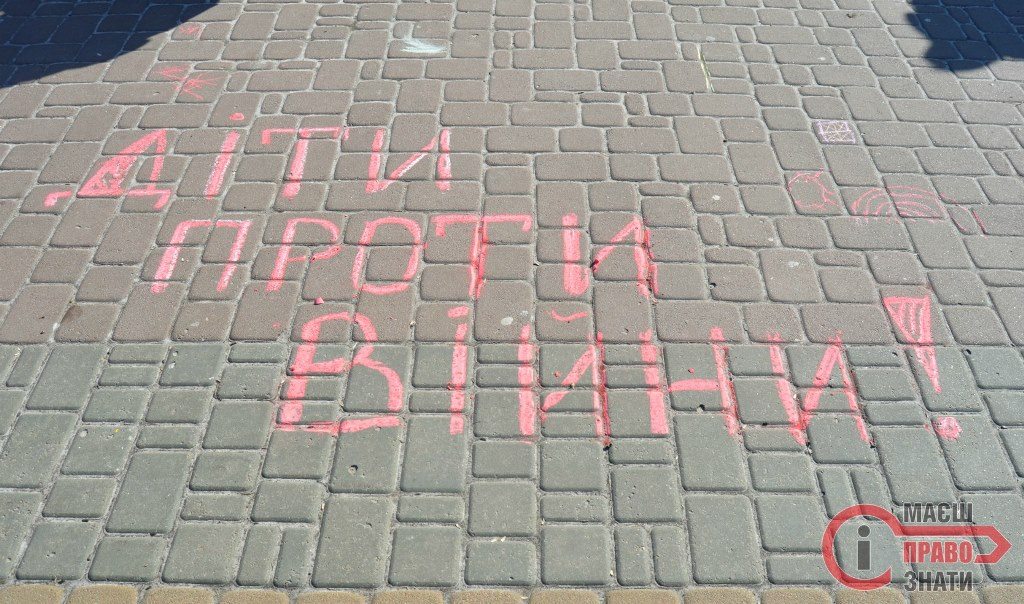 ДІТИ
ПРОТИ
ВІЙНИ!
МАЄШ
ПРАВО
ЗНАТИ